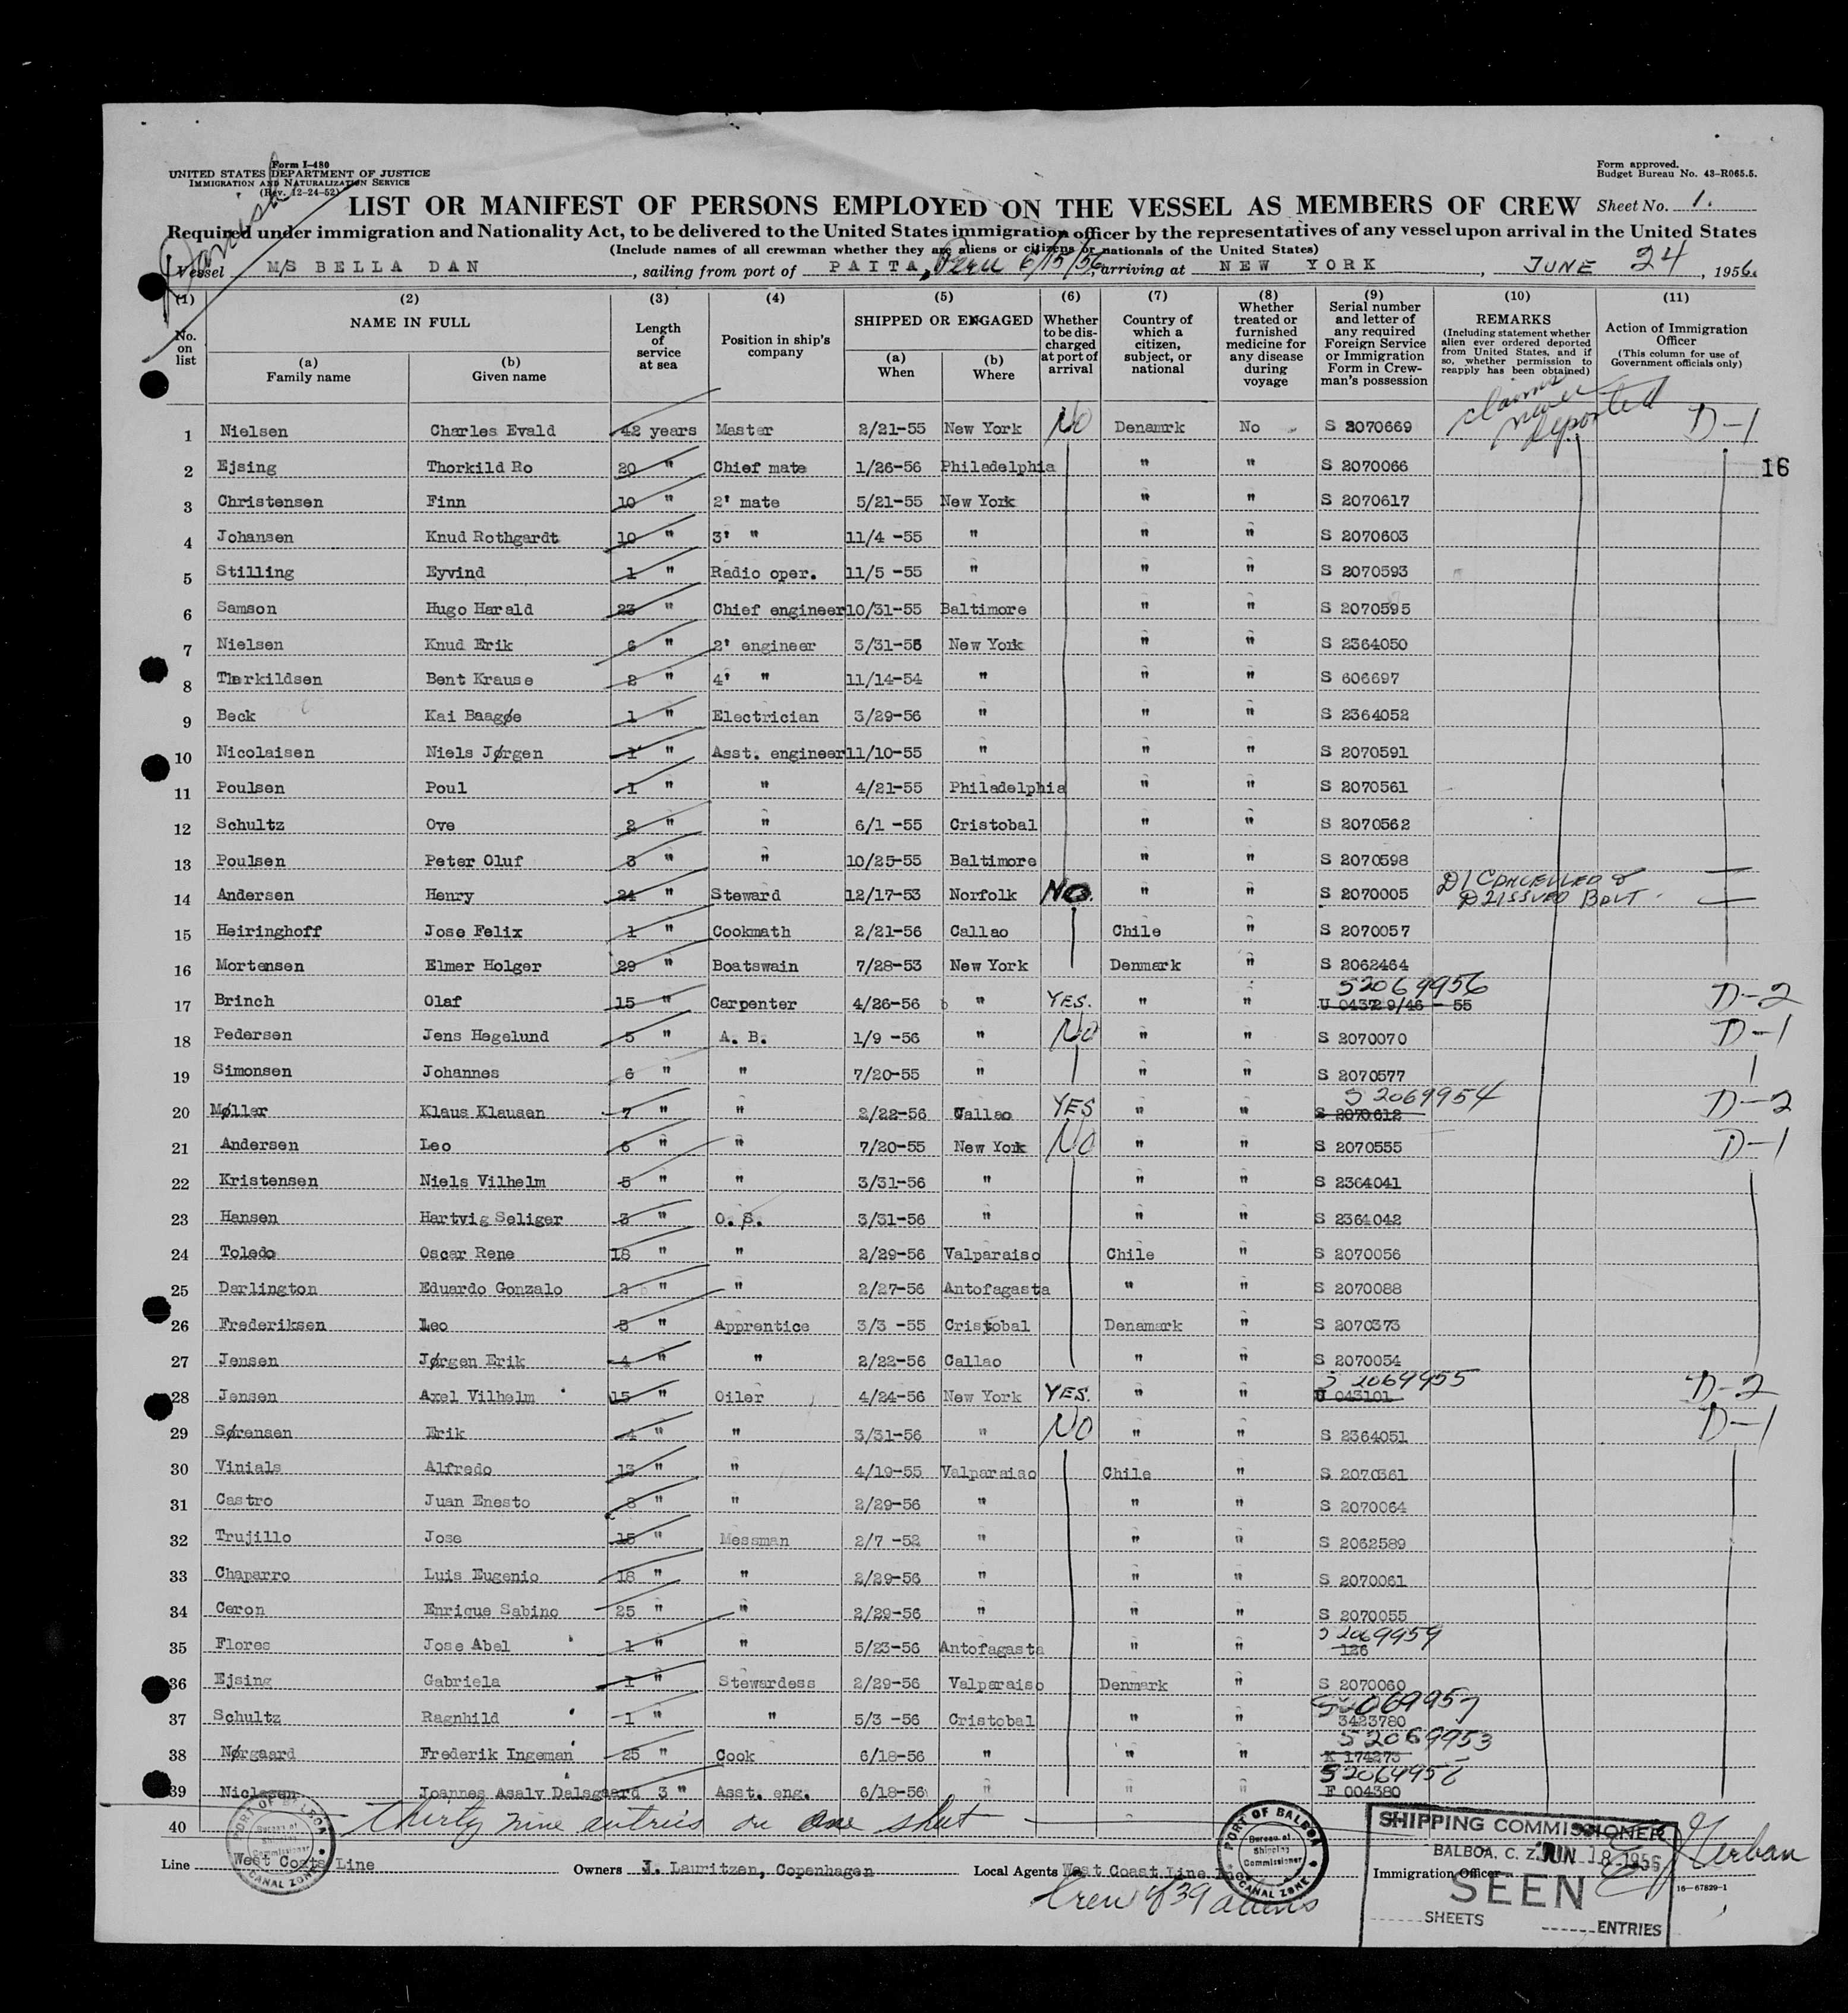 Form I-480
UNITED STATES DEPARTMENT OF JUSTICE
IMMIGRATION AND NATURALIZATION SERVICE
(Rev. 12-24-52)
Form approved.
Budget Bureau No. 43-R065.5.
Danish
LIST OR MANIFEST OF PERSONS EMPLOYED ON THE VESSEL AS MEMBERS OF CREW Sheet No. 1.
Required under immigration and Nationality Act, to be delivered to the United States immigration officer by the representatives of any vessel upon arrival in the United States
(Include names of all crewman whether they are aliens or citizens or nationals of the United States)
Vessel M/S BELLA DAN, sailing from port of PAITA, Peru 6/15/56 arriving at NEW YORK, JUNE 24, 1956.
(1) No. on list
(2) NAME IN FULL (a) Family name (b) Given name
(3) Length of service at sea
(4) Position in ship's company
(5) SHIPPED OR ENGAGED (a) When (b) Where
(6) Whether to be discharged at port of arrival
(7) Country of which a citizen, subject, or national
(8) Whether treated or furnished medicine for any disease during voyage
(9) Serial number and letter of any required Foreign Service or Immigration Form in Crewman's possession
(10) REMARKS (Including statement whether alien ever ordered deported from United States, and if so, whether permission to reapply has been obtained)
(11) Action of Immigration Officer (This column for use of Government officials only)
claims never deported
1 Nielsen Charles Evald 42 years Master 2/21-55 New York No Denamrk No S 2070669 D-1
16
2 Ejsing Thorkild Ro 20 " Chief mate 1/26-56 Philadelphia " " S 2070066
3 Christensen Finn 10 " 2' mate 5/21-55 New York " " S 2070617
4 Johansen Knud Rothgardt 10 " 3' " 11/4 -55 " " " S 2070603
5 Stilling Eyvind 1 " Radio oper. 11/5 -55 " " " S 2070593
6 Samson Hugo Harald 23 " Chief engineer 10/31-55 Baltimore " " S 2070595
7 Nielsen Knud Erik 6 " 2' engineer 3/31-56 New York " " S 2364050
8 Therkildsen Bent Krause 2 " 4' " 11/14-54 " " " S 606697
9 Beck Kai Baagøe 1 " Electrician 3/29-56 " " " S 2364052
10 Nicolaisen Niels Jørgen 1 " Asst. engineer 11/10-55 " " " S 2070591
11 Poulsen Poul 1 " " 4/21-55 Philadelphia " " S 2070561
12 Schultz Ove 2 " " 6/1 -55 Cristobal " " S 2070562
13 Poulsen Peter Oluf 3 " " 10/25-55 Baltimore " " S 2070598
14 Andersen Henry 24 " Steward 12/17-53 Norfolk NO. " " S 2070005 D1 CANCELLED & D2 ISSUED BALT.
15 Heiringhoff Jose Felix 1 " Cookmath 2/21-56 Callao Chile " S 2070057
16 Mortensen Elmer Holger 29 " Boatswain 7/28-53 New York Denmark " S 2062464
17 Brinch Olaf 15 " Carpenter 4/26-56 " YES. " " S2069956 U 04372 9/46 - 55 D-2
18 Pedersen Jens Hegelund 5 " A. B. 1/9 -56 " No " " S 2070070 D-1
19 Simonsen Johannes 6 " " 7/20-55 " " " S 2070577
20 Møller Klaus Klausen 7 " " 2/22-56 Callao YES " " S 2069954 S 2070612 D-2
21 Andersen Leo 6 " " 7/20-55 New York No " " S 2070555 D-1
22 Kristensen Niels Vilhelm 5 " " 3/31-56 " " " S 2364041
23 Hansen Hartvig Seliger 3 " O. S. 3/31-56 " " " S 2364042
24 Toledo Oscar Rene 18 " " 2/29-56 Valparaiso Chile " S 2070056
25 Darlington Eduardo Gonzalo 3 " " 2/27-56 Antofagasta " " S 2070088
26 Frederiksen Leo 3 " Apprentice 3/3 -55 Cristobal Denamark " S 2070373
27 Jensen Jørgen Erik 4 " " 2/22-56 Callao " " S 2070054
28 Jensen Axel Vilhelm 15 " Oiler 4/24-56 New York YES. " " S 2069955 U 043101 D-2
29 Sørensen Erik 4 " " 3/31-56 " No " " S 2364051 D-1
30 Vinials Alfredo 13 " " 4/19-55 Valparaiso Chile " S 2070361
31 Castro Juan Enesto 8 " " 2/29-56 " " " S 2070064
32 Trujillo Jose 15 " Messman 2/7 -52 " " " S 2062589
33 Chaparro Luis Eugenio 18 " " 2/29-56 " " " S 2070061
34 Ceron Enrique Sabino 25 " " 2/29-56 " " " S 2070055
35 Flores Jose Abel 1 " " 5/23-56 Antofagasta " " S 2069959 126
36 Ejsing Gabriela 1 " Stewardess 2/29-56 Valparaiso Denmark " S 2070060
37 Schultz Ragnhild 1 " " 5/3 -56 Cristobal " " S2069957 3423780
38 Nørgaard Frederik Ingeman 25 " Cook 6/18-56 " " " S2069953 K 174273
39 Niclasen Joannes Asalv Dalsgaard 3 " Asst. eng. 6/18-56 " " " F 004380
40 Thirty nine entries on one sheet
Line West Coast Line Owners J. Lauritzen, Copenhagen Local Agents West Coast Line Immigration Officer
PORT OF BALBOA Bureau of Shipping Commissioner CANAL ZONE
PORT OF BALBOA Bureau of Shipping Commissioner CANAL ZONE
SHIPPING COMMISSIONER
BALBOA, C. Z. JUN 18 1956
SEEN
SHEETS ENTRIES
16-67829-1
Crew of 39 aliens